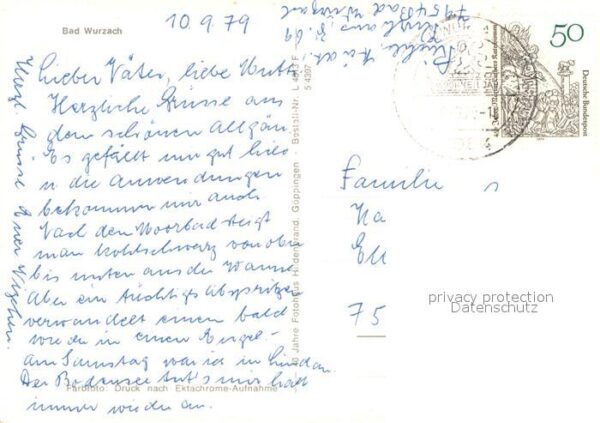 10.9.79
Bad Wurzach
Lieber Vater, liebe Mutti
Herzliche Grüsse aus
dem schönen Allgäu.
Es gefällt mir gut hier
u die Anwendungen
bekommen mir auch
Nach dem Moorbad steigt
man kohlschwarz von oben
bis unten aus der Wanne
Aber ein tüchtiges Abspritzen
verwandelt einen bald
wieder in einen Engel.
Am Samstag war ich in Lindau
Der Bodensee tut's mir halt
immer wieder an.
Herzl. Grüsse Euer
Farbfoto: Druck nach Ektachrome-Aufnahme
Jahre Fotohaus Hildenbrand, Göppingen - Bestell-Nr. L
5/4307
7954 Bad Wurzach
50
Deutsche Bundespost
Familie
Ha
75
privacy protection
Datenschutz